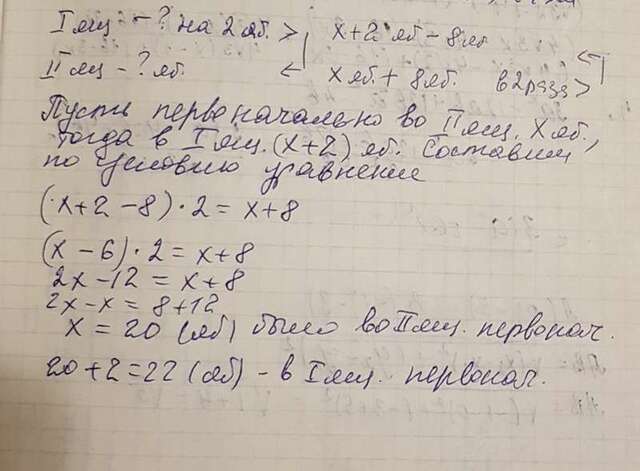 I ящ - ? на 2 яб. > x + 2 яб - 8 яб
II ящ - ? яб. ← x яб. + 8 яб. в 2 раза >
Пусть первоначально во II ящ. x яб.,
тогда в I ящ. (x+2) яб. Составим
по условию уравнение
(x+2-8)·2 = x+8
(x-6)·2 = x+8
2x-12 = x+8
2x-x = 8+12
x = 20 (яб) было во II ящ. первонач.
20+2=22 (яб) - в I ящ. первонач.